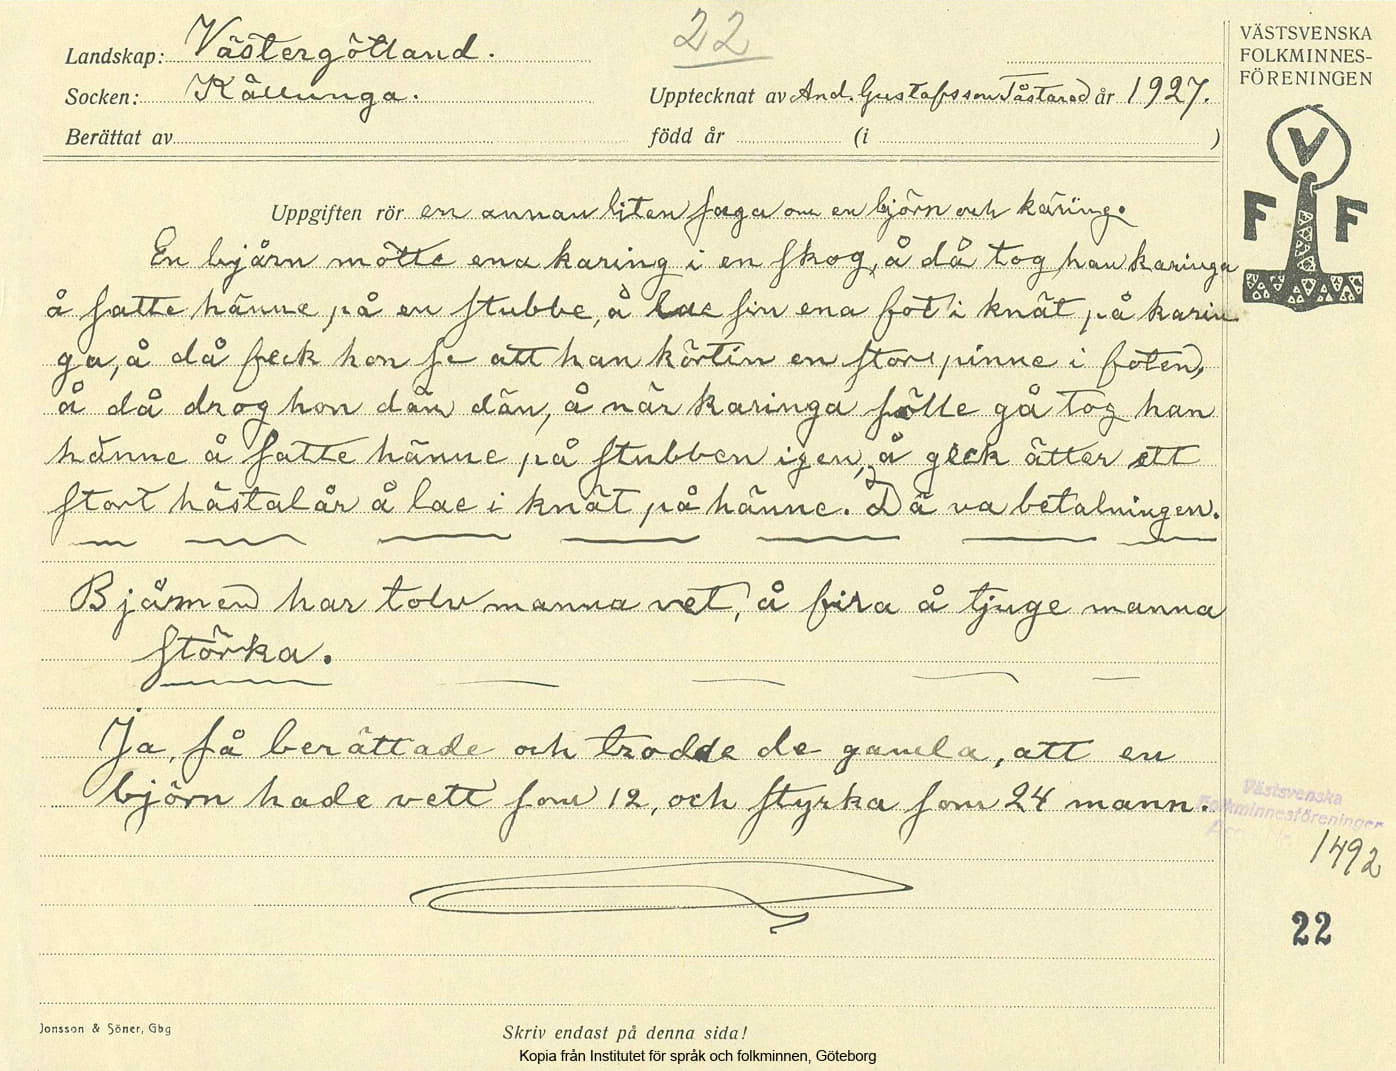 22
Landskap: Västergötland.
Socken: Källunga.
Upptecknat av And. Gustafsson Tåstared år 1927.
Berättat av
född år (i )
VÄSTSVENSKA
FOLKMINNES-
FÖRENINGEN
V
F F
Uppgiften rör en annan liten saga om en björn och käring.
En bjårn mötte ena karing i en skog, å då tog han karinga
å satte hänne på en stubbe, å lae sin ena fot i knät på karin
ga, å då feck hon se att han kört in en stor pinne i foten,
å då drog hon dän dän, å när karinga sölle gå tog han
hänne å satte hänne på stubben igen, å geck ätter ett
stort hästalår å lae i knät på hänne. Dä va betalningen.
Bjårnen har tolv manna vet, å fira å tjuge manna
störka.
Ja, så berättade och trodde de gamla, att en
björn hade vett som 12, och styrka som 24 mann.
Västsvenska
Folkminnesföreningen
1492
22
Jonsson & Söner, Gbg
Skriv endast på denna sida!
Kopia från Institutet för språk och folkminnen, Göteborg